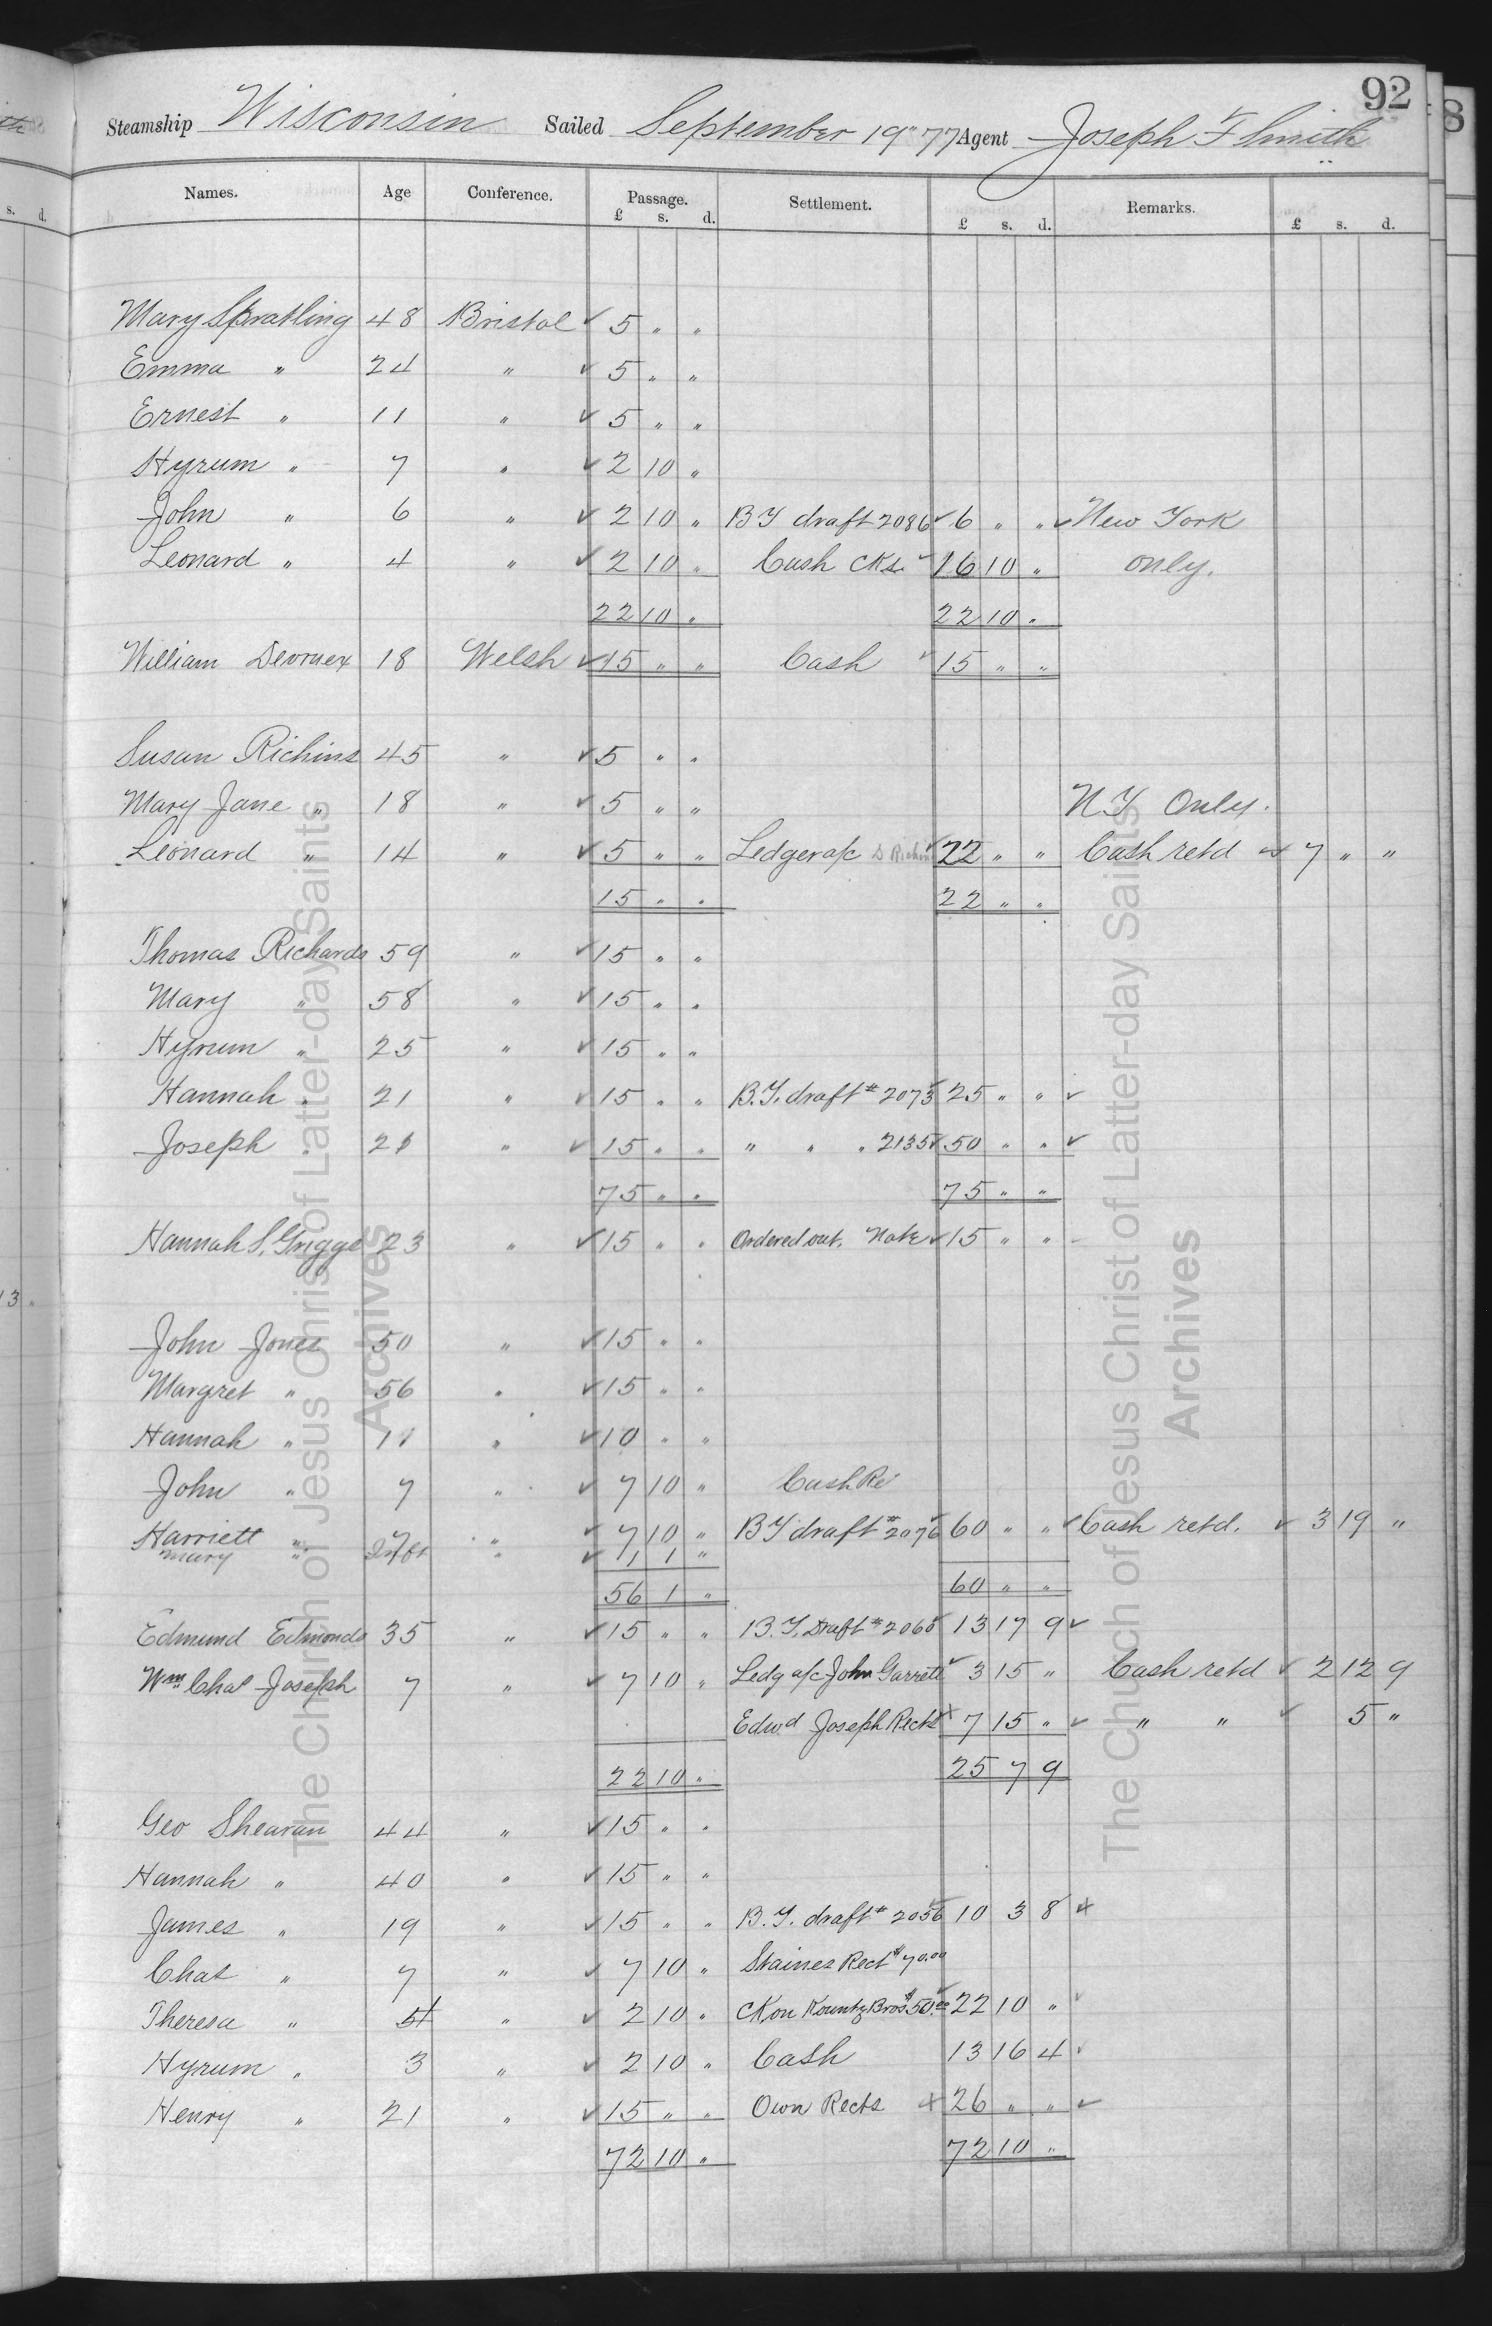 92
Steamship Wisconsin Sailed September 19" 77 Agent Joseph F Smith
Names. Age Conference. Passage. Settlement. Remarks.
£ s. d. £ s. d. £ s. d.
Mary Spratling 48 Bristol ✓ 5 " "
Emma " 24 " ✓ 5 " "
Ernest " 11 " ✓ 5 " "
Hyrum " 7 " ✓ 2 10 "
John " 6 " ✓ 2 10 " BY draft 2086 ✓ 6 " " ✓ New York
Leonard " 4 " ✓ 2 10 " Cash Cks. ✓ 16 10 " only.
22 10 " 22 10 "
William Devonex 18 Welsh ✓ 15 " " Cash ✓ 15 " "
Susan Richins 45 " ✓ 5 " "
Mary Jane " 18 " ✓ 5 " " N Y Only.
Leonard " 14 " ✓ 5 " " Ledger a/c S Richins ✓ 22 " " Cash retd ✓ 7 " "
15 " " 22 " "
Thomas Richards 59 " ✓ 15 " "
Mary " 58 " ✓ 15 " "
Hyrum " 25 " ✓ 15 " "
Hannah " 21 " ✓ 15 " " B.Y. draft # 2073 ✓ 25 " " ✓
Joseph " 21 " ✓ 15 " " " " " 2135 ✓ 50 " " ✓
75 " " 75 " "
Hannah S. Griggs 23 " ✓ 15 " " Ordered out. Note ✓ 15 " "
John Jones 50 " ✓ 15 " "
Margret " 56 " ✓ 15 " "
Hannah " 11 " ✓ 10 " "
John " 7 " ✓ 7 10 " Cash Re
Harriett " 7 " ✓ 7 10 " BY draft # 2076 ✓ 60 " " ✓ Cash retd. ✓ 3 19 "
Mary " Inft " ✓ 1 1 "
56 1 " 60 " "
Edmund Edmonds 35 " ✓ 15 " " B.Y. Draft # 2060 ✓ 13 17 9 ✓
Wm Chas Joseph 7 " ✓ 7 10 " Ledg a/c John Garrett ✓ 3 15 " Cash retd ✓ 2 12 9
Edwd Joseph Rects + 7 15 " ✓ " " ✓ 5 "
22 10 " 25 7 9
Geo Shearan 44 " ✓ 15 " "
Hannah " 40 " ✓ 15 " "
James " 19 " ✓ 15 " " B.Y. draft # 2056 ✓ 10 3 8 +
Chas " 7 " ✓ 7 10 " Staines Rect $70.00
Theresa " 5 " ✓ 2 10 " Ck on Kountz Bros $50.00 ✓ 22 10 " ✓
Hyrum " 3 " ✓ 2 10 " Cash 13 16 4 ✓
Henry " 21 " ✓ 15 " " Own Rects + 26 " " ✓
72 10 " 72 10 "
The Church of Jesus Christ of Latter-day Saints
Archives
The Church of Jesus Christ of Latter-day Saints
Archives